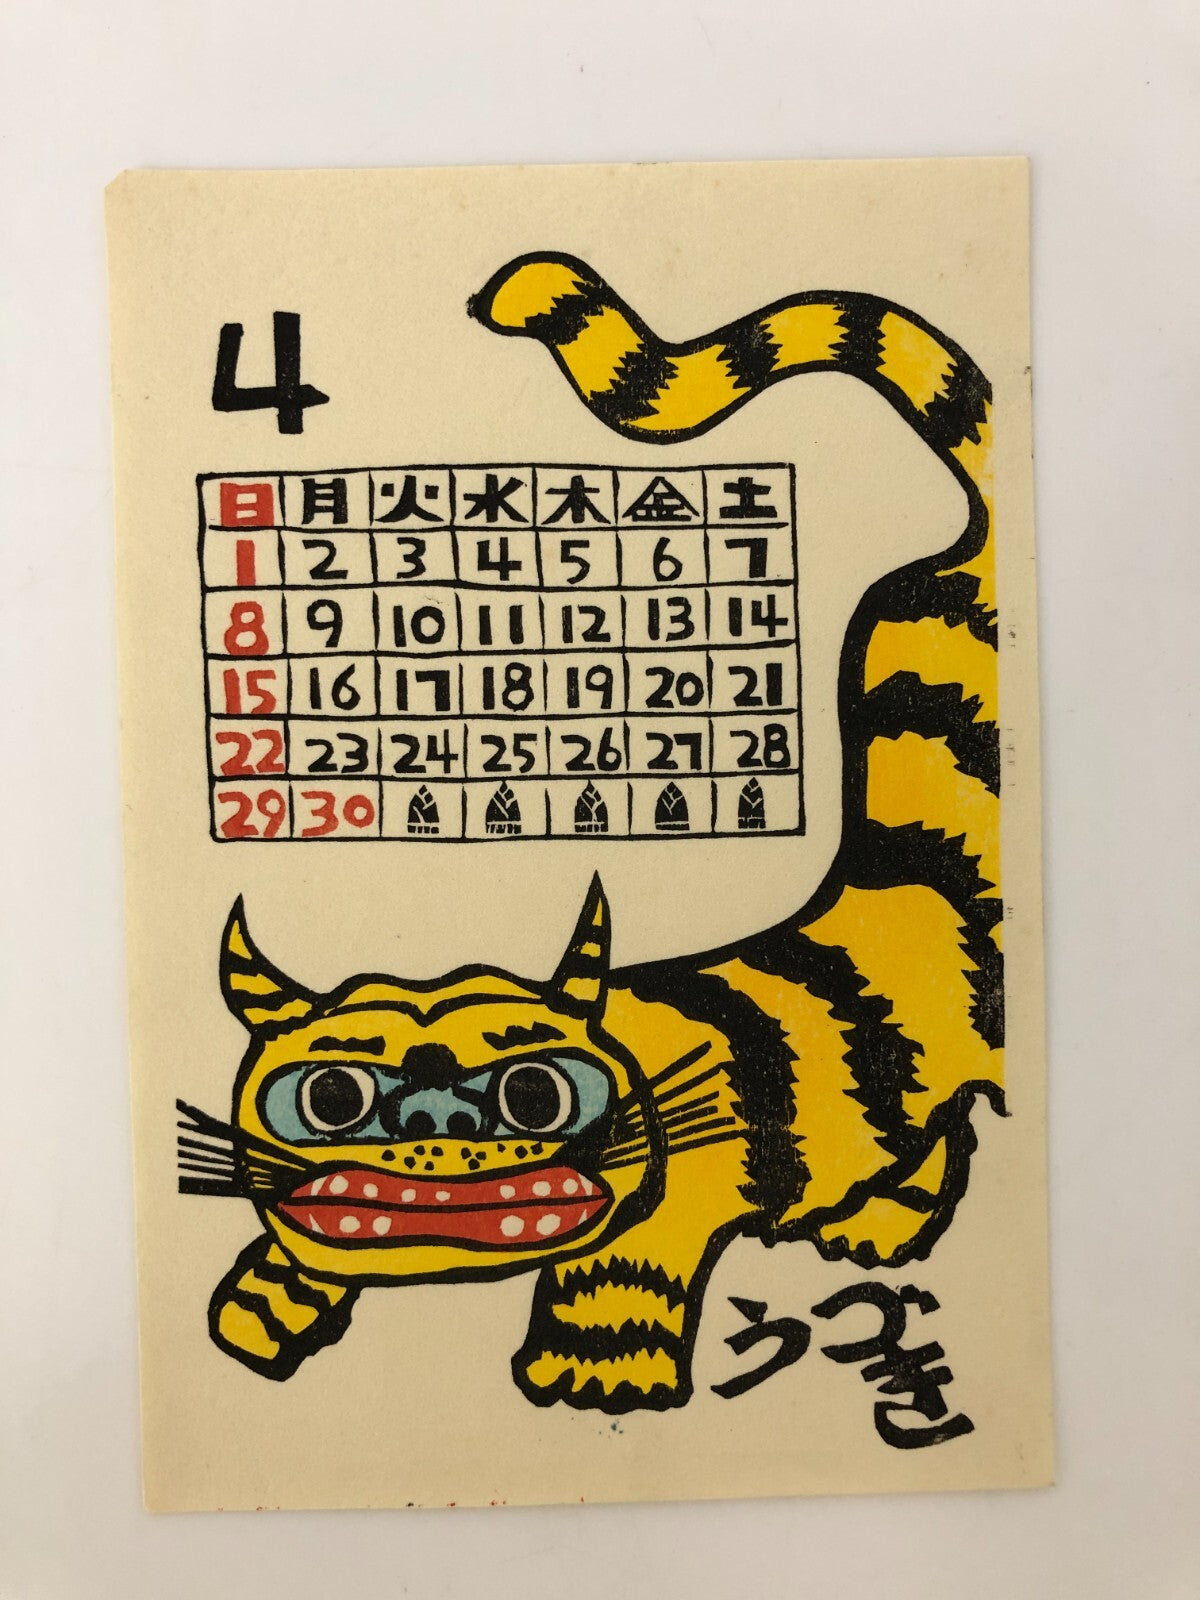 4
日 月 火 水 木 金 土
1 2 3 4 5 6 7
8 9 10 11 12 13 14
15 16 17 18 19 20 21
22 23 24 25 26 27 28
29 30
うづき